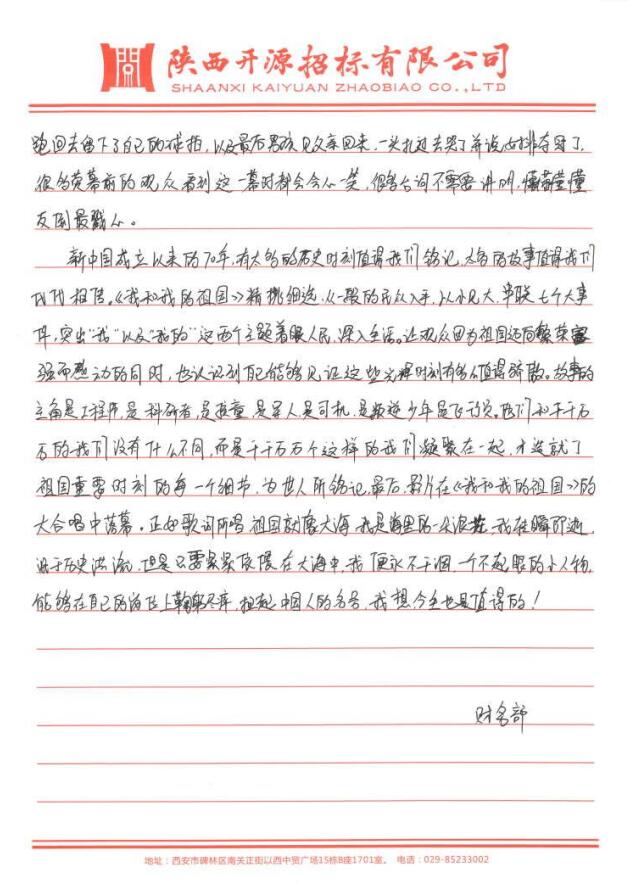 陕西开源招标有限公司
SHAANXI KAIYUAN ZHAOBIAO CO.,LTD
跑回去留下了自己的球拍,以及最后男孩见父亲回来,一头扎过去哭了并说女排夺冠了,
很多荧幕前的观众看到这一幕时都会会心一笑,很多台词不需要讲明,懵懵懂懂
反倒最戳心。
新中国成立以来的70年,有太多的历史时刻值得我们铭记,太多的故事值得我们
代代相传。《我和我的祖国》精挑细选,从一般的民众入手,以小见大,串联七个大事
件,突出“我”以及“我的”这两个主题着眼人民,深入生活。让观众因为祖国迈向繁荣富
强而感动的同时,也认识到自己能够见证这些光辉时刻有多么值得骄傲。故事的
主角是工程师,是科研者,是孩童,是军人,是司机,是叛逆少年,是飞行员。他们和千千万
万的我们没有什么不同,而是千千万万个这样的我们凝聚在一起,才造就了
祖国重要时刻的每一个细节,为世人所铭记。最后,影片在《我和我的祖国》的
大合唱中落幕。正如歌词所唱祖国就像大海,我是海里的一朵浪花,我在瞬即逝
于历史洪流,但是只要紧紧依偎在大海中,我便永不干涸,一个不起眼的小人物,
能够在自己的岗位上鞠躬尽瘁,担起中国人的名号,我想今生也是值得的!
财务部
地址:西安市碑林区南关正街以西中贸广场15栋B座1701室。 电话:029-85233002